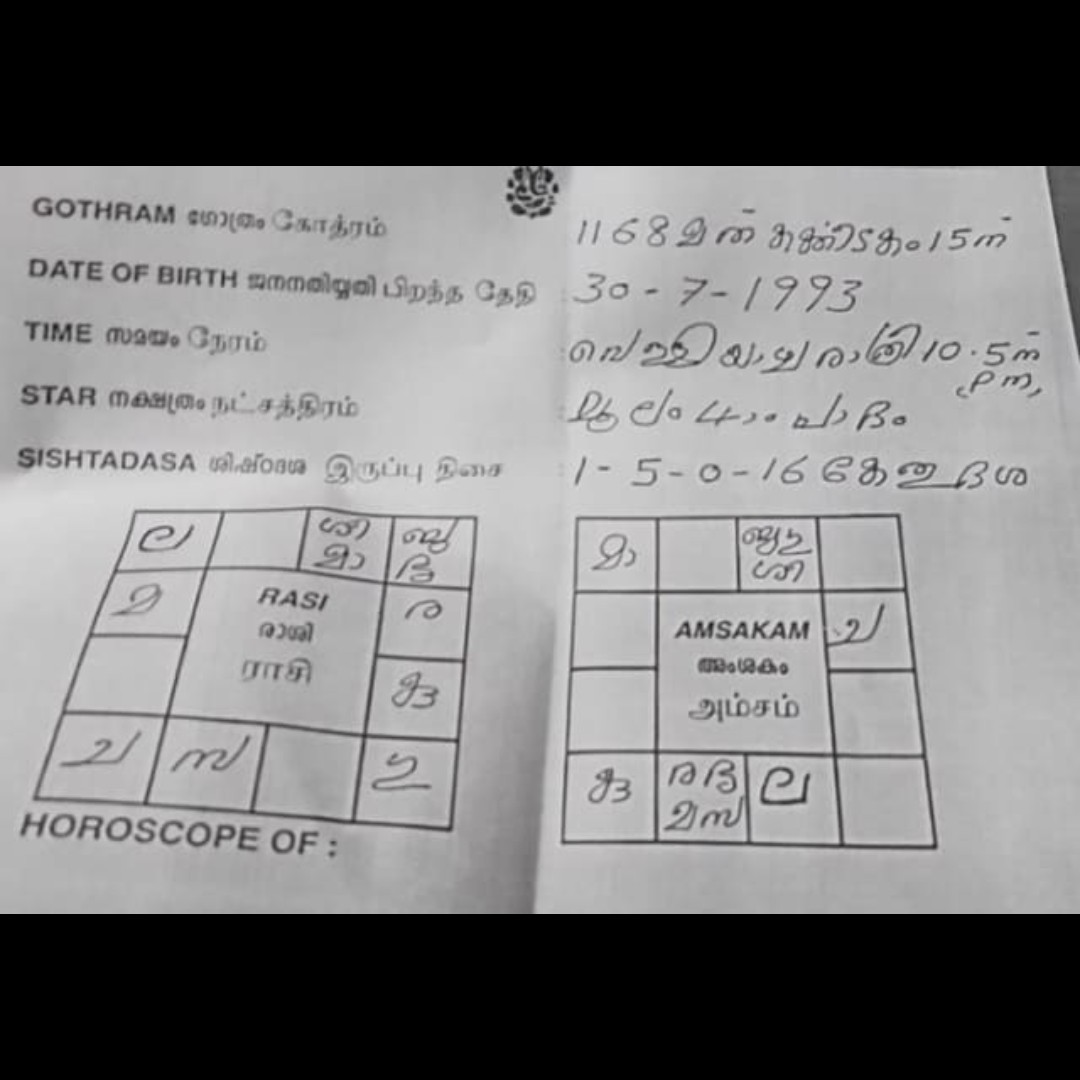 GOTHRAM ഗോത്രം கோத்ரம்
1168 മത് കർക്കിടകം 15ന്
DATE OF BIRTH ജനനതിയ്യതി பிறந்த தேதி 30-7-1993
TIME സമയം நேரம் : വെള്ളിയാഴ്ച രാത്രി 10.5ന്
Pm
STAR നക്ഷത്രം நட்சத்திரம் : മൂലം 4ാം പാദം
SISHTADASA ശിഷ്ടദശ இருப்பு திசை : 1-5-0-16 കേതു ദശ
ല ശി ബു
മാ
മ ര
RASI
രാശി
ராசி
ച സ
HOROSCOPE OF :
മാ
ശി
AMSAKAM ച
അംശകം
அம்சம்
ല
മ സ